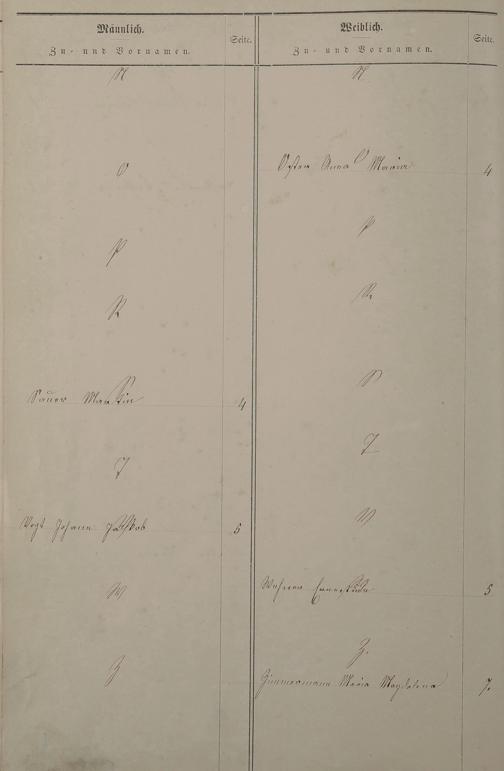 Männlich.
Zu- und Vornamen.
Seite.
N
O
P
R
S
Sauer Martin 4
T
V
Vogt Johann Jakob 5
W
Z
Weiblich.
Zu- und Vornamen.
Seite.
N
O
Oster Anna Maria 4
P
R
S
T
W
5
Z.
Zimmermann Maria Magdalena 7.